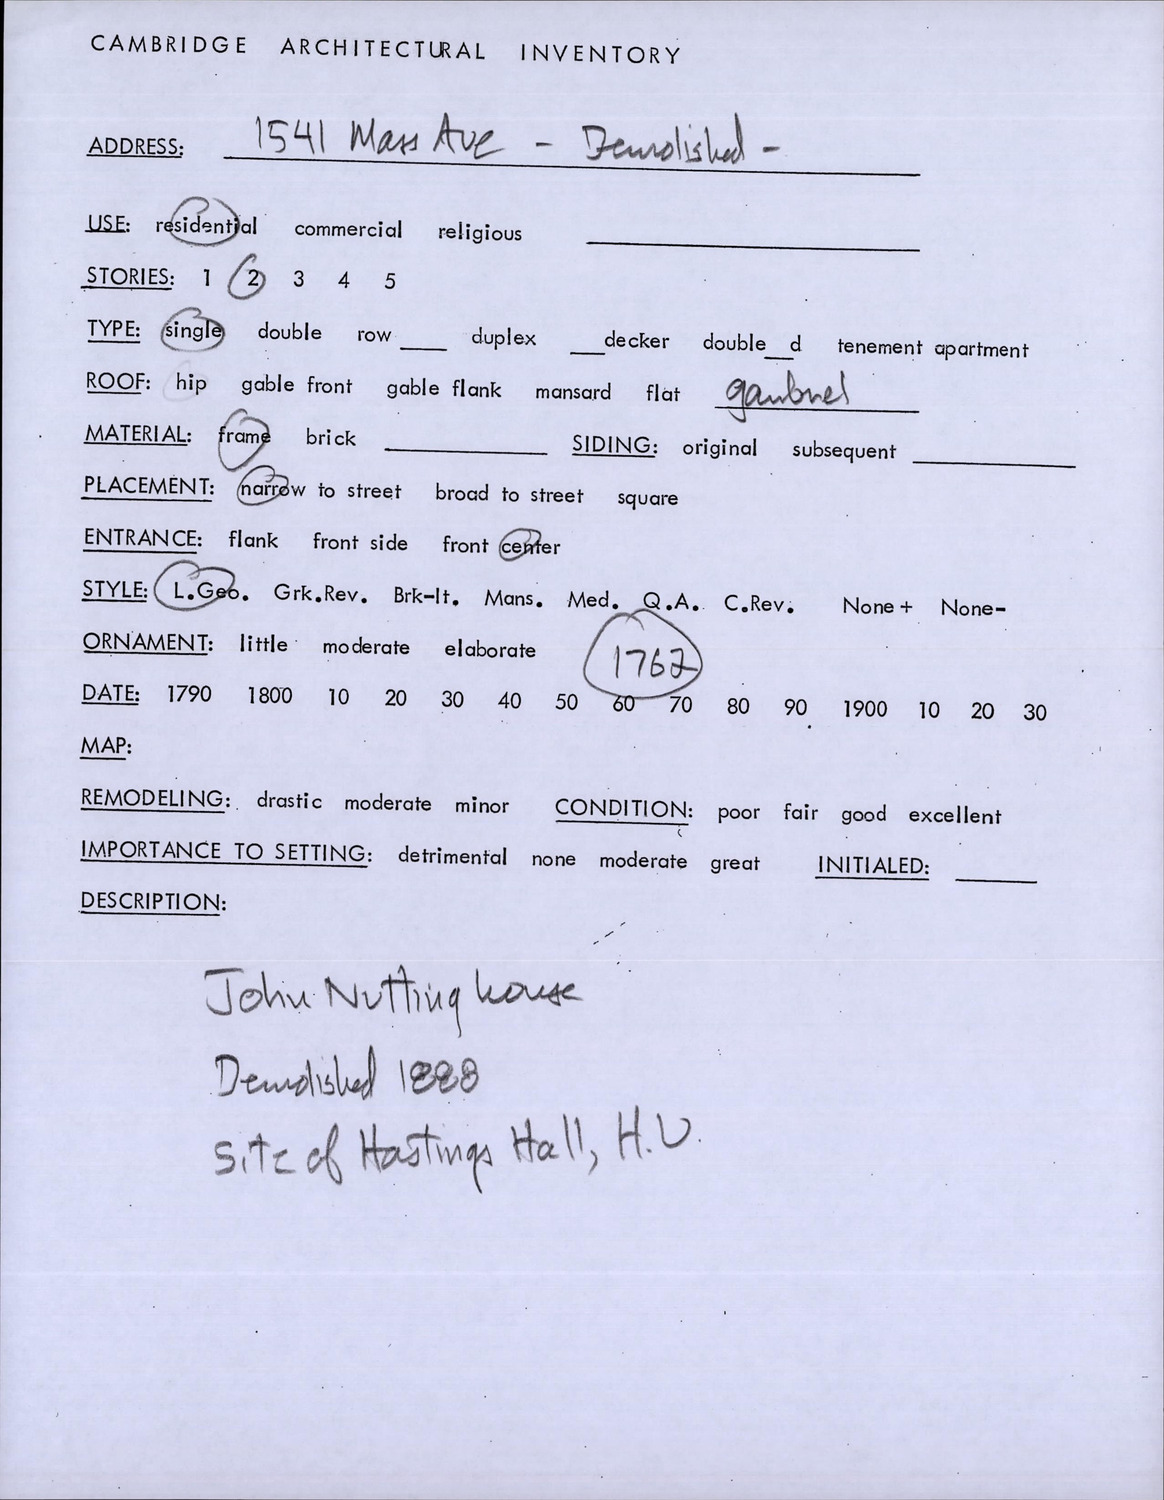 CAMBRIDGE ARCHITECTURAL INVENTORY
ADDRESS: 1541 Mass Ave - Demolished -
USE: residential commercial religious
STORIES: 1 2 3 4 5
TYPE: single double row ___ duplex ___decker double__d tenement apartment
ROOF: hip gable front gable flank mansard flat gambrel
MATERIAL: frame brick ___ SIDING: original subsequent ___
PLACEMENT: narrow to street broad to street square
ENTRANCE: flank front side front center
STYLE: L.Geo. Grk.Rev. Brk-It. Mans. Med. Q.A. C.Rev. None+ None-
ORNAMENT: little moderate elaborate 1762
DATE: 1790 1800 10 20 30 40 50 60 70 80 90 1900 10 20 30
MAP:
REMODELING: drastic moderate minor CONDITION: poor fair good excellent
IMPORTANCE TO SETTING: detrimental none moderate great INITIALED: ___
DESCRIPTION:
John Nutting house
Demolished 1888
Site of Hastings Hall, H.U.